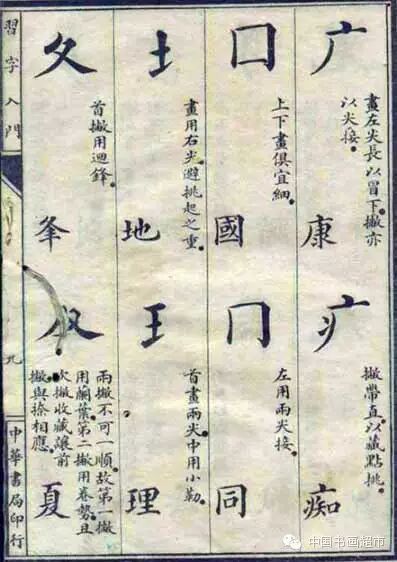 广
畫左尖長以冒下。撇亦
以尖接。
康
囗
上下畫俱宜細。
國
土
畫用右尖。避挑起之重。
地
夂
首撇用迴鋒。
夆
疒
撇帶直。以藏點挑。
痴
冂
左用兩尖接。
同
王
首畫兩尖中用小勒。
理
兩撇不可一順。故第一撇
用蘭葉。第二撇用卷勢。且
次撇收藏讓前
撇與捺相應。
夏
習字入門
九
中華書局印行
中国书画超市